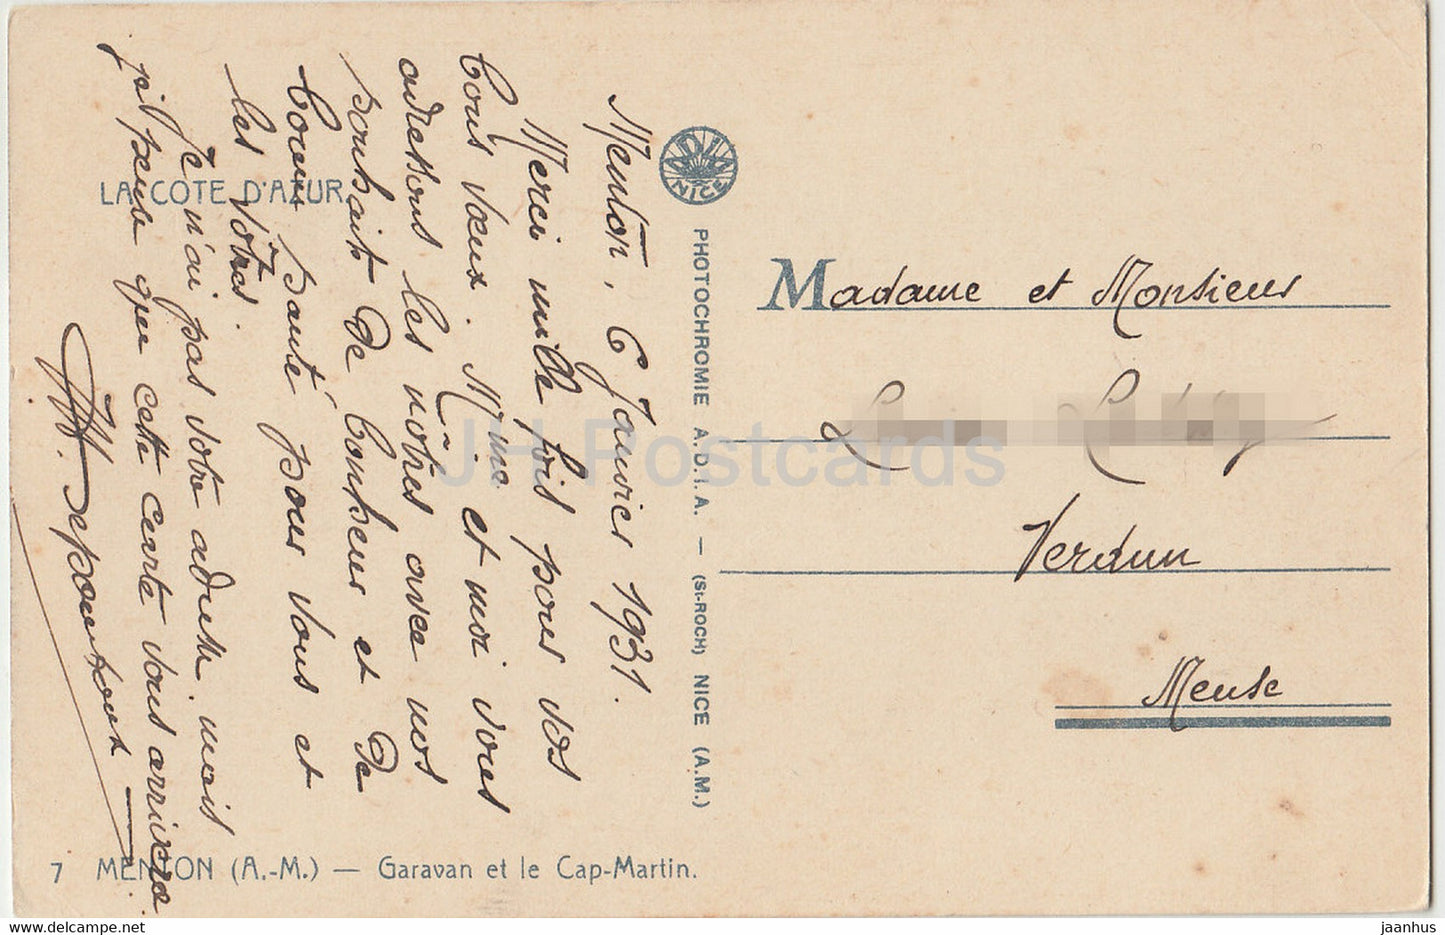 LA COTE D'AZUR
Menton, 6 Janvier 1931.
Merci mille fois pour vos
bons vœux. Mme et moi vous
adressons les nôtres avec nos
souhaits de bonheur et de
bonne santé pour vous et
les vôtres.
Je n'ai pas votre adresse mais
j'espère que cette carte vous arrivera
ADIA
NICE
PHOTOCHROMIE A.D.I.A. — (St-ROCH) NICE (A.M.)
Madame et Monsieur
Verdun
Meuse
7 MENTON (A.-M.) — Garavan et le Cap-Martin.
JH Postcards
www.delcampe.net
jaanhus